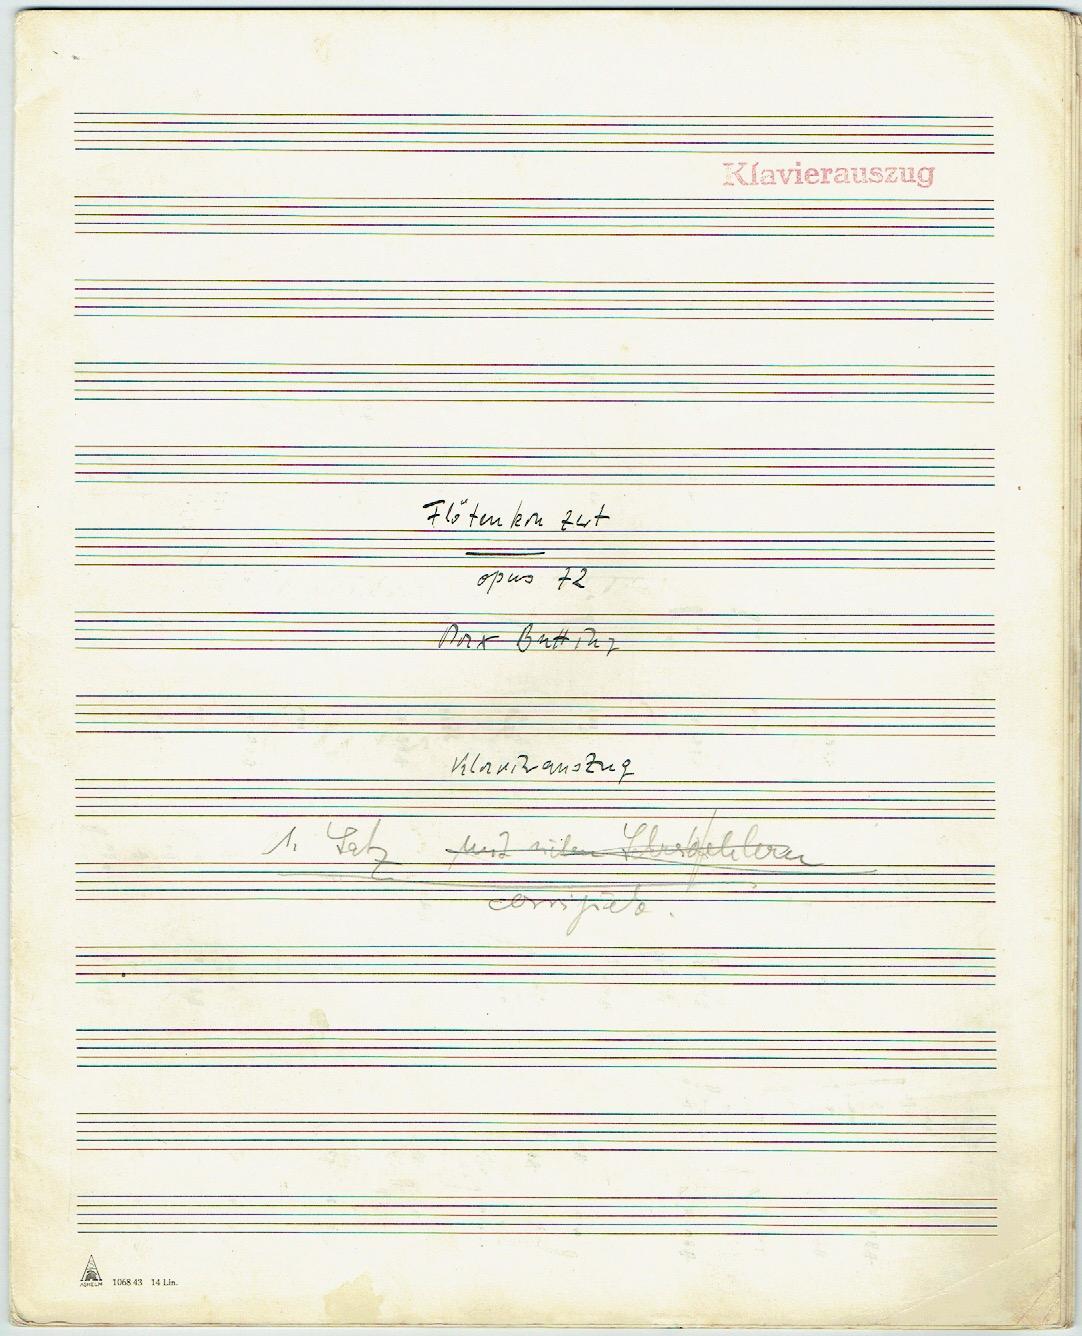 Klavierauszug
Flötenkonzert
opus 72
Max Butting
Klavierauszug
1. Satz mit vielen Schreibfehlern
corrigiert.
ASHELM 1068 43 14 Lin.